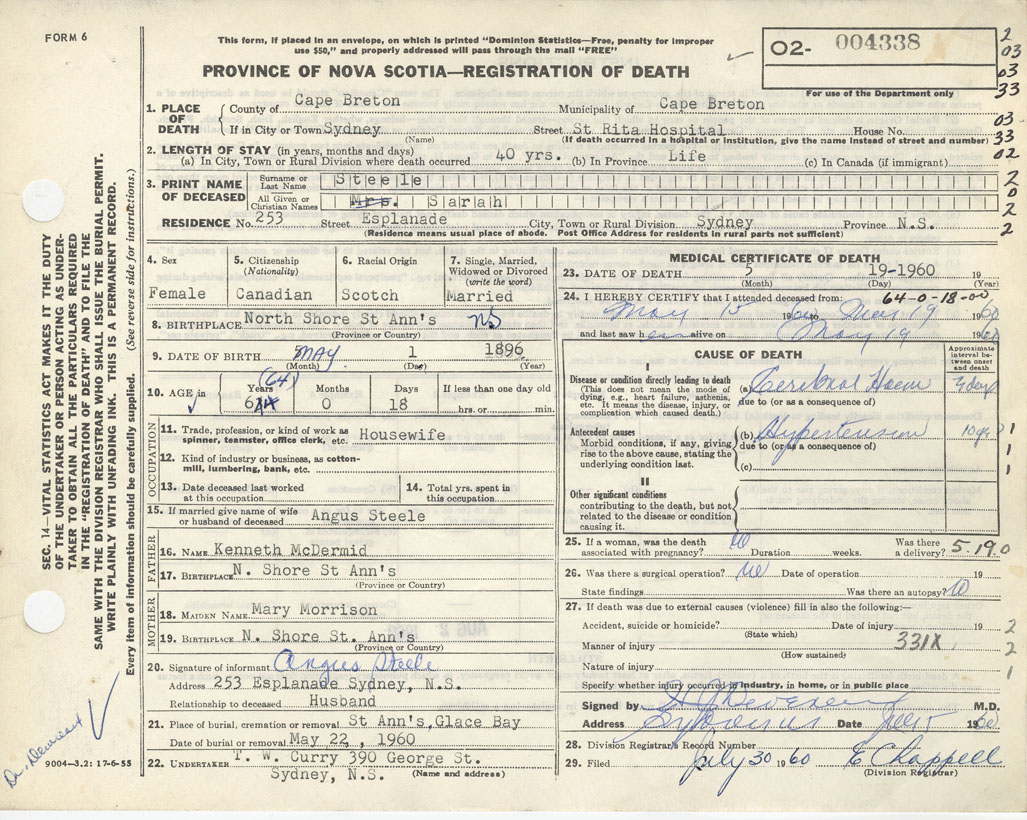 FORM 6
This form, if placed in an envelope, on which is printed "Dominion Statistics—Free, penalty for improper
use $50," and properly addressed will pass through the mail "FREE"
PROVINCE OF NOVA SCOTIA—REGISTRATION OF DEATH
O2- 004338
For use of the Department only
2
03
03
33
1. PLACE OF DEATH
County of Cape Breton Municipality of Cape Breton
If in City or Town Sydney Street St Rita Hospital House No.
(Name) (If death occurred in a hospital or institution, give the name instead of street and number)
03
33
02
2. LENGTH OF STAY (in years, months and days)
(a) In City, Town or Rural Division where death occurred 40 yrs. (b) In Province Life (c) In Canada (if immigrant)
3. PRINT NAME OF DECEASED
Surname or Last Name Steele
All Given or Christian Names Mrs. Sarah
2
0
2
2
RESIDENCE No. 253 Street Esplanade City, Town or Rural Division Sydney Province N.S.
(Residence means usual place of abode. Post Office Address for residents in rural parts not sufficient)
4. Sex
Female
5. Citizenship
(Nationality)
Canadian
6. Racial Origin
Scotch
7. Single, Married,
Widowed or Divorced
(write the word)
Married
8. BIRTHPLACE North Shore St Ann's NS
(Province or Country)
9. DATE OF BIRTH MAY 1 1896
(Month) (Day) (Year)
10. AGE in
Years (64)
Months 0
Days 18
If less than one day old
hrs. or min.
OCCUPATION
11. Trade, profession, or kind of work as
spinner, teamster, office clerk, etc. Housewife
12. Kind of industry or business, as cotton-
mill, lumbering, bank, etc.
13. Date deceased last worked
at this occupation
14. Total yrs. spent in
this occupation
15. If married give name of wife
or husband of deceased Angus Steele
FATHER
16. NAME Kenneth McDermid
17. BIRTHPLACE N. Shore St Ann's
(Province or Country)
MOTHER
18. MAIDEN NAME Mary Morrison
19. BIRTHPLACE N. Shore St. Ann's
(Province or Country)
20. Signature of informant Angus Steele
Address 253 Esplanade Sydney, N.S.
Relationship to deceased Husband
21. Place of burial, cremation or removal St Ann's, Glace Bay
Date of burial or removal May 22, 1960
22. UNDERTAKER T. W. Curry 390 George St.
Sydney, N.S. (Name and address)
MEDICAL CERTIFICATE OF DEATH
23. DATE OF DEATH 5 19-1960 19
(Month) (Day) (Year)
24. I HEREBY CERTIFY that I attended deceased from: 64-0-18-00
May 15 1960 to May 19 1960
and last saw her alive on May 19 1960
CAUSE OF DEATH
Approximate
interval be-
tween onset
and death
I
Disease or condition directly leading to death
(This does not mean the mode of
dying, e.g., heart failure, asthenis,
etc. It means the disease, injury, or
complication which caused death.)
(a) Cerebral Haem 4 days
due to (or as a consequence of)
Antecedent causes
Morbid conditions, if any, giving
rise to the above cause, stating the
underlying condition last.
(b) Hypertension 10 yrs
due to (or as a consequence of)
(c)
1
1
1
II
Other significant conditions
contributing to the death, but not
related to the disease or condition
causing it.
25. If a woman, was the death
associated with pregnancy? no Duration weeks. Was there
a delivery? 5.19.0
26. Was there a surgical operation? no Date of operation 19
State findings Was there an autopsy? no
27. If death was due to external causes (violence) fill in also the following:—
Accident, suicide or homicide? Date of injury 19
(State which)
Manner of injury 331X
(How sustained)
Nature of injury
Specify whether injury occurred in industry, in home, or in public place
2
2
1
Signed by M.D.
Address Sydney Date 1960
28. Division Registrar's Record Number
29. Filed July 30 1960 E Chappell
(Division Registrar)
SEC. 14—VITAL STATISTICS ACT MAKES IT THE DUTY
OF THE UNDERTAKER OR PERSON ACTING AS UNDER-
TAKER TO OBTAIN ALL THE PARTICULARS REQUIRED
IN THE "REGISTRATION OF DEATH" AND TO FILE THE
SAME WITH THE DIVISION REGISTRAR WHO SHALL ISSUE THE BURIAL PERMIT.
WRITE PLAINLY WITH UNFADING INK. THIS IS A PERMANENT RECORD.
Every item of information should be carefully supplied. (See reverse side for instructions.)
9004—3.2: 17-6-55